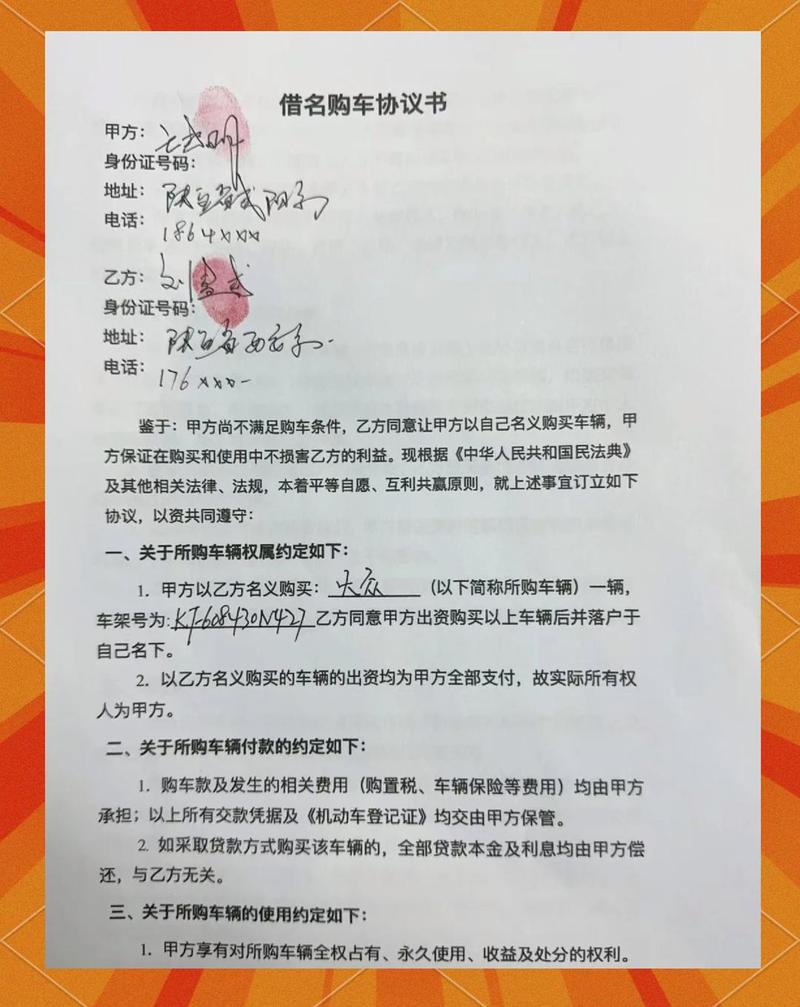 借名购车协议书
甲方：
身份证号码：
地址：陕西省咸阳市
电话：1864xxxx
乙方：刘
身份证号码：
地址：陕西省西安市.
电话：176xxxx
鉴于：甲方尚不满足购车条件，乙方同意让甲方以自己名义购买车辆，甲
方保证在购买和使用中不损害乙方的利益。现根据《中华人民共和国民法典》
及其他相关法律、法规，本着平等自愿、互利共赢原则，就上述事宜订立如下
协议，以资共同遵守：
一、关于所购车辆权属约定如下：
1. 甲方以乙方名义购买：大众（以下简称所购车辆）一辆，
车架号为：KJ-608430N427乙方同意甲方出资购买以上车辆后并落户于
自己名下。
2. 以乙方名义购买的车辆的出资均为甲方全部支付，故实际所有权
人为甲方。
二、关于所购车辆付款的约定如下：
1. 购车款及发生的相关费用（购置税、车辆保险等费用）均由甲方
承担；以上所有交款凭据及《机动车登记证》均交由甲方保管。
2. 如采取贷款方式购买该车辆的，全部贷款本金及利息均由甲方偿
还，与乙方无关。
三、关于所购车辆的使用约定如下：
1. 甲方享有对所购车辆全权占有、永久使用、收益及处分的权利。